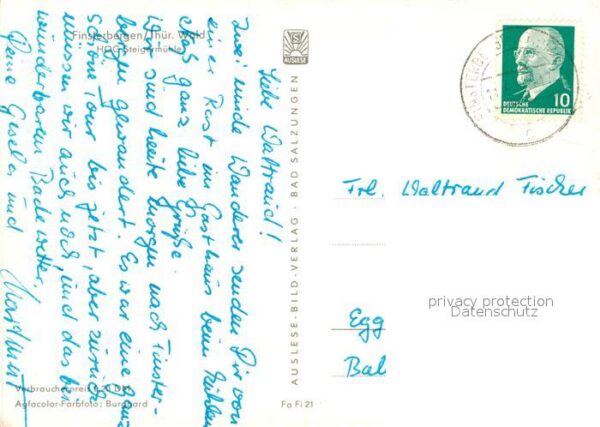 Finsterbergen/Thür. Wald
HOG Steigermühle
Liebe Waltraud!
Zwei müde Wanderer senden Dir von
einer Rast im Gasthaus beim kühlen
ganz liebe Grüße.
Wir sind heute morgen nach Finster-
bergen gewandert. Es war eine ganz
schöne Tour bis jetzt, aber zurück
müssen wir auch noch, und das bei
wunderbarem Badewetter.
Deine Gisela und
Hartmut
Verbraucherpreis
Agfacolor-Farbfoto: Burghard
Fa Fi 21
AUSLESE
AUSLESE-BILD-VERLAG · BAD SALZUNGEN
10
DEUTSCHE
DEMOKRATISCHE REPUBLIK
Frl. Waltraud Fischer
privacy protection
Datenschutz
Egg
Bal